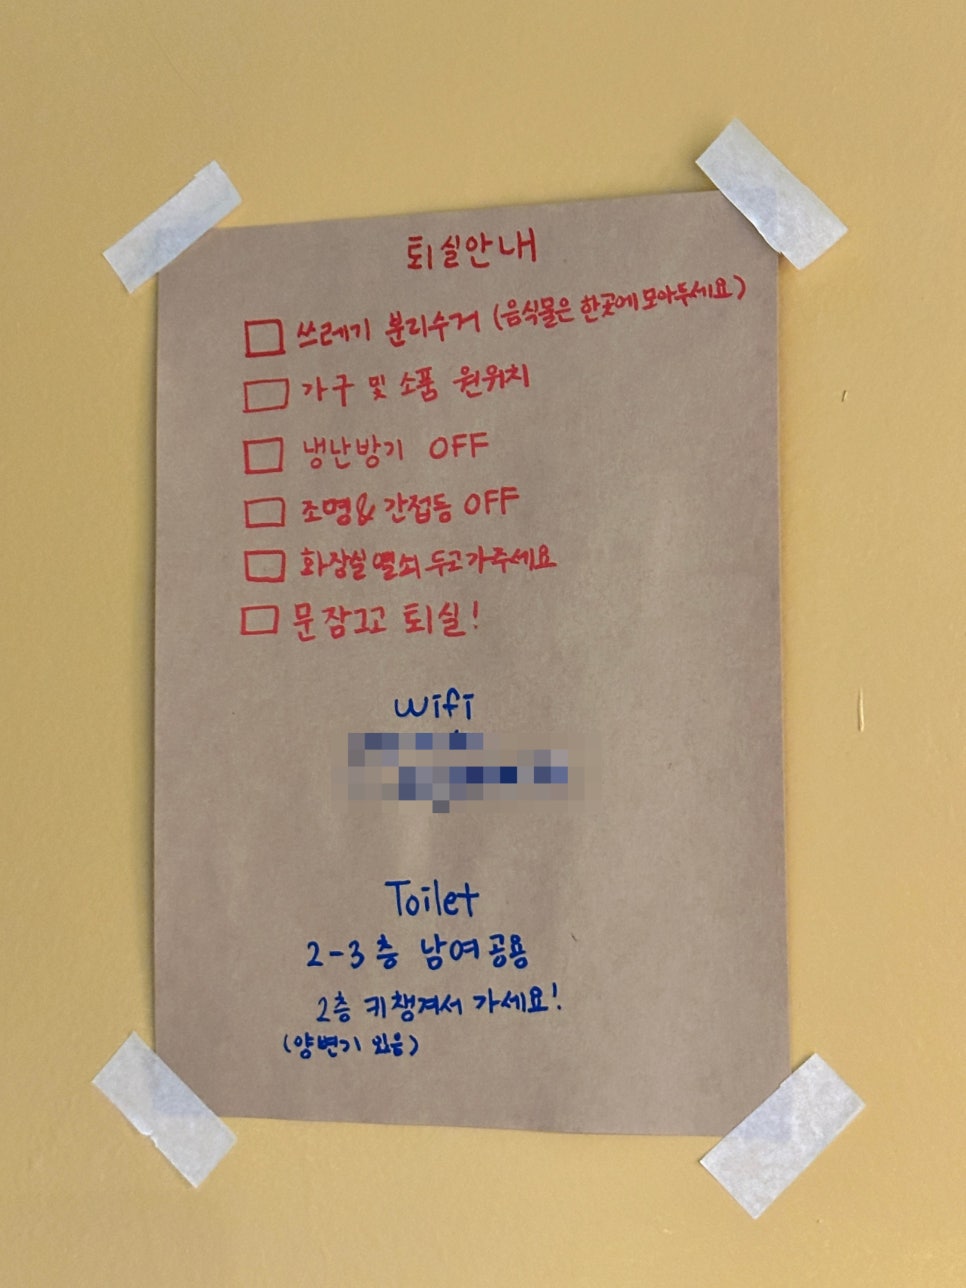 퇴실안내
쓰레기 분리수거 (음식물은 한곳에 모아두세요)
가구 및 소품 원위치
냉난방기 OFF
조명& 간접등 OFF
화장실 열쇠 두고가주세요
문 잠그고 퇴실!
Wifi
Toilet
2-3층 남여공용
2층 키챙겨서 가세요!
(양변기 있음)